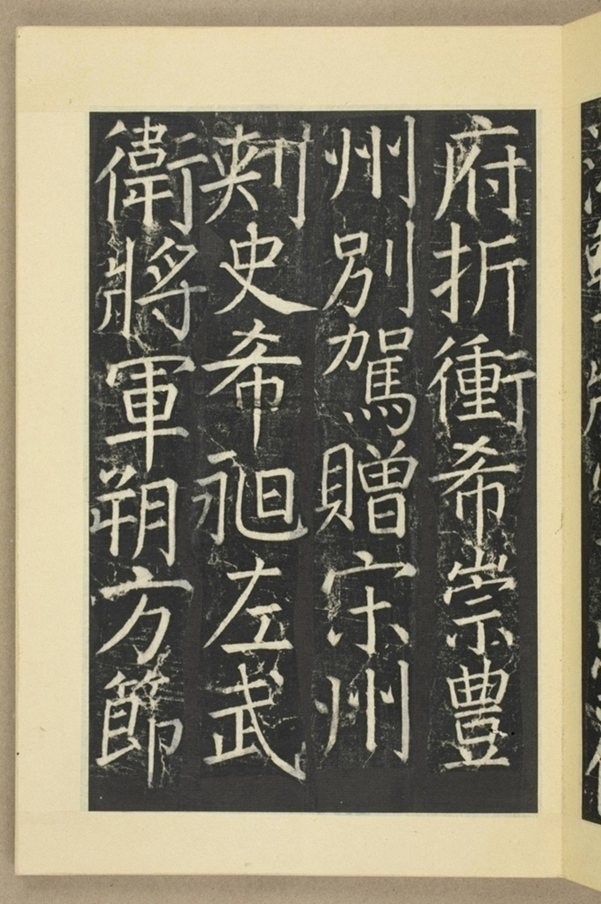 府折衝希崇豊
州別駕贈宋州
刾史希昶左武
衛將軍朔方節